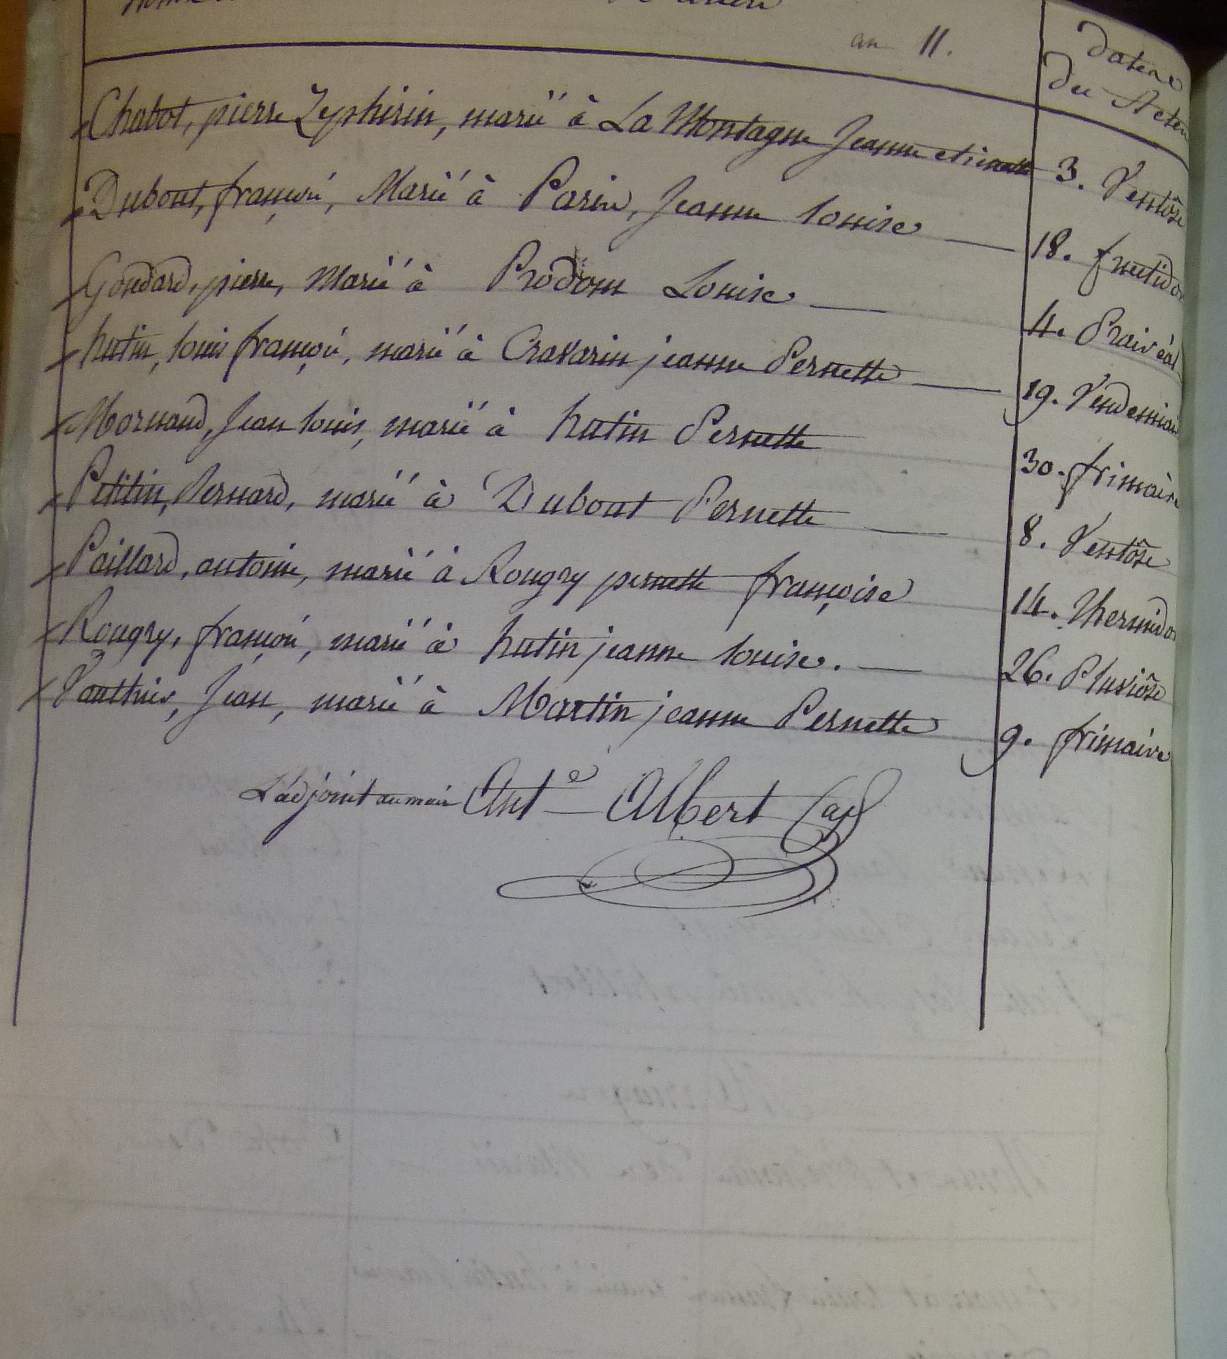 an 11.
Dates
des Actes
Chabot, pierre Zephirin, marié à La Montagne Jeanne etiennette 3. Ventôse
Dubout, françois, Marié à Parin, Jeanne Louise 18. fructidor
Goudard, pierre, Marié à Prodom Louise 4. Prairéal
hutin, Louis françois, marié à Cravarin jeanne Pernette 19. Vendemiai
Mornand, Jean Louis, marié à hutin Pernette 30. frimaire
Petitin, Bernard, marié à Dubout Pernette 8. Ventôse
Paillard, antoine, marié à Rougry pernette françoise 14. Thermidor
Rougry, françois, marié à hutin jeanne Louise. 26. Pluviôse
Vauthier, Jean, marié à Martin jeanne Pernette 9. frimaire
L'adjoint au maire Ant.e Albert